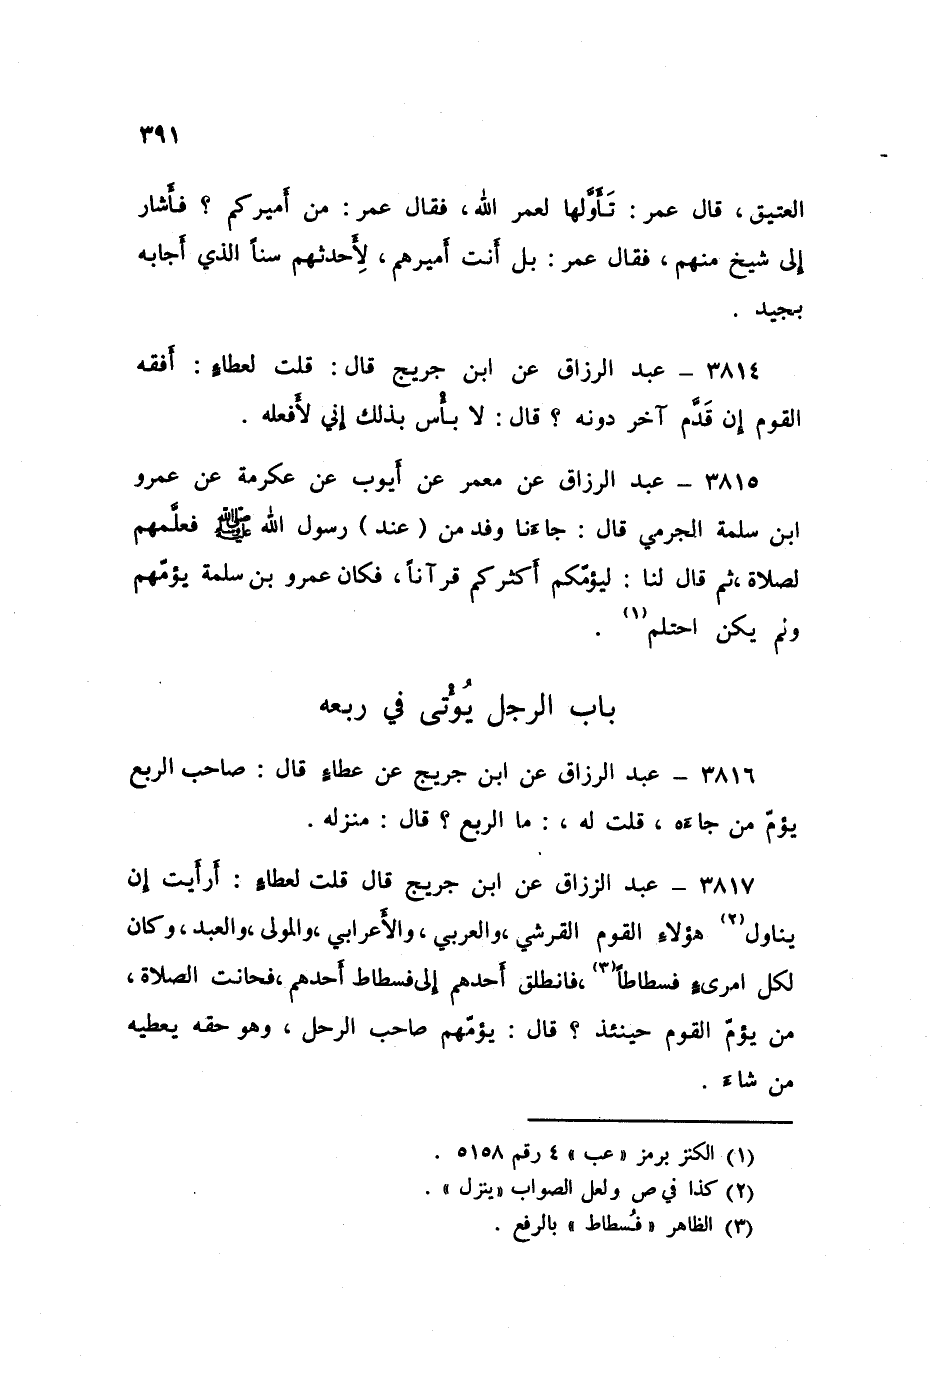 ٣٩١
العتيق ، قال عمر : تَأَوَّلها لعمر الله ، فقال عمر : من أَميركم ؟ فأَشار
إلى شيخ منهم ، فقال عمر : بل أَنت أَميرهم ، لِأَحدثهم سناً الذي أَجابه
بجيد .
٣٨١٤ – عبد الرزاق عن ابن جريج قال : قلت لعطاءٍ : أَفقه
القوم إِن قَدَّم آخر دونه ؟ قال : لا بأْس بذلك إني لأَفعله .
٣٨١٥ – عبد الرزاق عن معمر عن أَيوب عن عكرمة عن عمرو
ابن سلمة الجرمي قال : جاءَنا وفد من ( عند ) رسول الله ﷺ فعلَّمهم
لصلاة ،ثم قال لنا : ليؤمّكم أَكثركم قرآناً ، فكان عمرو بن سلمة يؤمّهم
ونم يكن احتلم(١) .
باب الرجل يُؤْتى في ربعه
٣٨١٦ – عبد الرزاق عن ابن جريج عن عطاءٍ قال : صاحب الربع
يؤمّ من جاءَه ، قلت له ، : ما الربع ؟ قال : منزله .
٣٨١٧ – عبد الرزاق عن ابن جريج قال قلت لعطاءٍ : أَرأَيت إِن
يناول(٢) هؤلاءِ القوم القرشي ،والعربي ، والأَعرابي ،والمولى ،والعبد ، وكان
لكل امرىءٍ فسطاطاً(٣) ،فانطلق أَحدهم إلى فسطاط أَحدهم ،فحانت الصلاة ،
من يؤمّ القوم حينئذ ؟ قال : يؤمّهم صاحب الرحل ، وهو حقه يعطيه
من شاءَ .
(١) الكنز برمز « عب » ٤ رقم ٥١٥٨ .
(٢) كذا في ص ولعل الصواب « ينزل » .
(٣) الظاهر « فُسطاط » بالرفع .